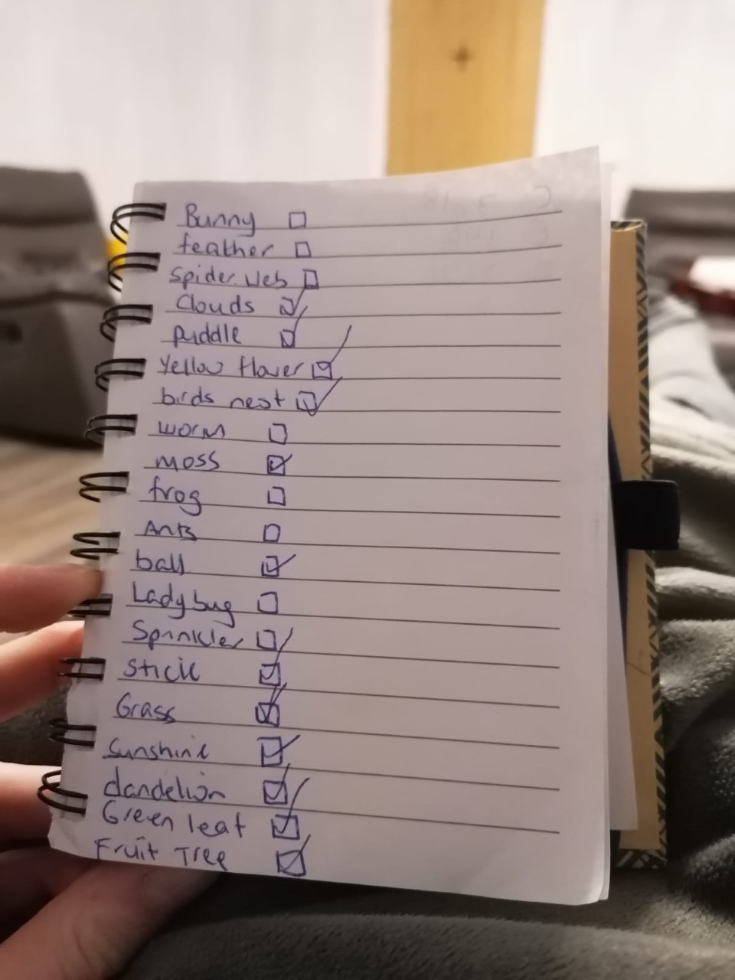 Bunny ☐
feather ☐
Spider Web ☐
Clouds ☑
puddle ☑
Yellow flower ☑
birds nest ☑
worm ☐
moss ☑
frog ☐
Ants ☐
ball ☑
Ladybug ☐
Sprinkler ☐
Stick ☑
Grass ☑
Sunshine ☑
dandelion ☑
Green leaf ☑
Fruit Tree ☑